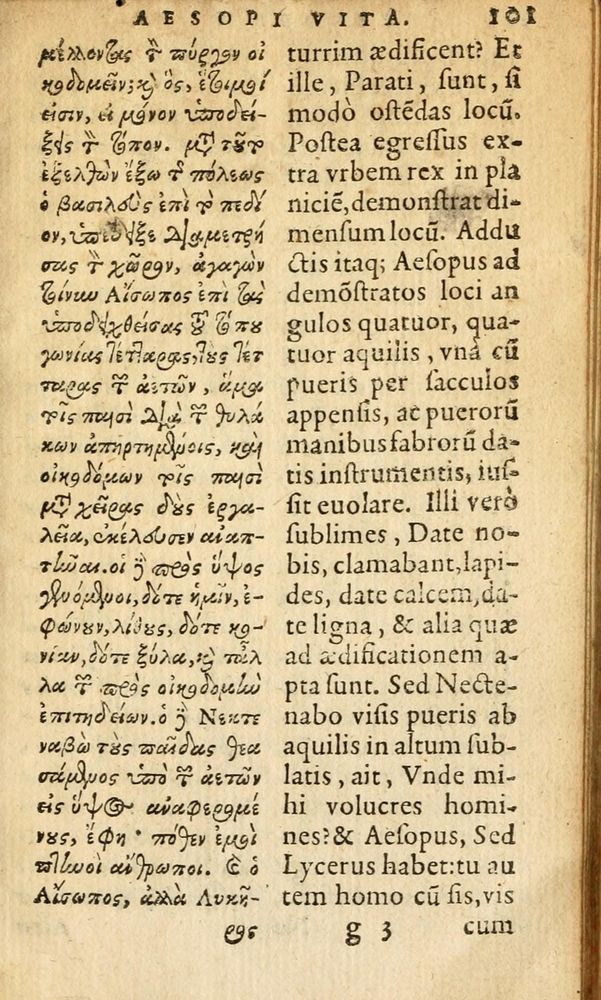 AESOPI VITA. 101
μέλλοντας τὸν πύργον οἰ
κοδομεῖν; καὶ ὃς, ἕτοιμοί
εἰσιν, εἰ μόνον ὑποδεί-
ξῃς τὸν τόπον. μετὰ τοῦτο
ἐξελθὼν ἔξω τῆς πόλεως
ὁ βασιλεὺς ἐπὶ τὸ πεδί
ον, ὑπέδειξε διαμετρή
σας τὸν χῶρον, ἀγαγὼν
τοίνυν Αἴσωπος ἐπὶ τὰς
ὑποδειχθείσας τοῦ τόπου
γωνίας τέτταρας, τοὺς τέτ
ταρας τῶν ἀετῶν, ἅμα
τοῖς παισὶ διὰ τῶν θυλά
κων ἀπηρτημένοις, καὶ
οἰκοδόμων τοῖς παισὶ
μετὰ χεῖρας δοὺς ἐργα-
λεῖα, ἐκέλευσεν ἀναπ-
τῆναι. οἱ δὲ πρὸς ὕψος
γενόμενοι, δότε ἡμῖν, ἐ-
φώνουν, λίθους, δότε κο-
νίαν, δότε ξύλα, καὶ τἆλ
λα τῶν πρὸς οἰκοδομὴν
ἐπιτηδείων. ὁ δὲ Νεκτε
ναβὼ τοὺς παῖδας θεα
σάμενος ὑπὸ τῶν ἀετῶν
εἰς ὕψος ἀναφερομέ
νους, ἔφη· πόθεν ἐμοὶ
πτηνοὶ ἄνθρωποι. καὶ ὁ
Αἴσωπος, ἀλλὰ Λυκῆ-
ρος
turrim ædificent? Et
ille, Parati, ſunt, ſi
modò oſtẽdas locũ.
Poſtea egreſſus ex-
tra vrbem rex in pla
niciẽ, demonſtrat di-
menſum locũ. Addu
ctis itaq; Aeſopus ad
demõſtratos loci an
gulos quatuor, qua-
tuor aquilis, vnà cũ
pueris per ſacculos
appenſis, ac puerorũ
manibus fabrorũ da-
tis inſtrumentis, iuſ-
ſit euolare. Illi verò
ſublimes, Date no-
bis, clamabant, lapi-
des, date calcem, da-
te ligna, & alia quæ
ad ædificationem a-
pta ſunt. Sed Necte-
nabo viſis pueris ab
aquilis in altum ſub-
latis, ait, Vnde mi-
hi volucres homi-
nes? & Aeſopus, Sed
Lycerus habet: tu au
tem homo cũ ſis, vis
g 3 cum